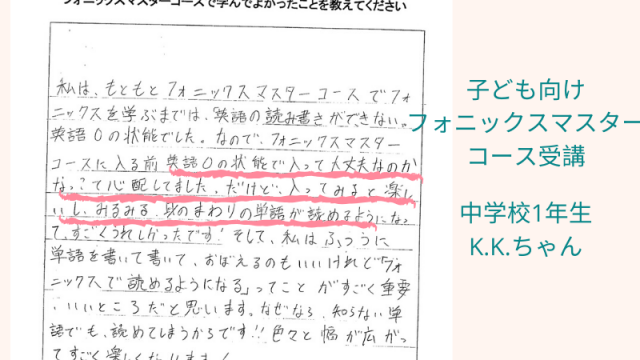 フォニックスマスターコースで学んでよかったことを教えてください
私は、もともとフォニックスマスターコースでフォ
ニックスを学ぶまでは、英語の読み書きができない。
英語0の状態でした。なので、フォニックスマスター
コースに入る前英語0の状態で入って大丈夫なのか
な?って心配してました。だけど、入ってみると楽し
いし、みるみる、身のまわりの単語が読めるようになっ
て、すごくうれしかったです!そして、私はふつうに
単語を書いて書いて、おぼえるのもいいけれど「フォ
ニックスで読めるようになる」ってことがすごく重要
でいいところだと思います。なぜなら、知らない単
語でも、読めてしまうからです!!色々と幅が広がっ
てすごく楽しく
子ども向け
フォニックスマスター
コース受講
中学校1年生
K.K.ちゃん